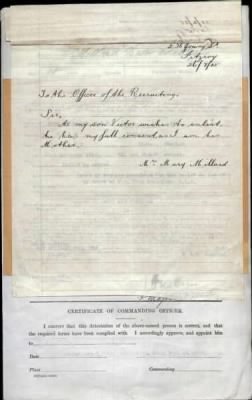 Fitzroy
To the Officer of the Recruiting.
Sir,
As my son Victor wishes to enlist
he has my full consent and am his
Mother.
Mrs Mary Millard
CERTIFICATE OF COMMANDING OFFICER.
I CERTIFY that this Attestation of the above-named person is correct, and that
the required forms have been complied with. I accordingly approve, and appoint him
to
Date
Place Commanding